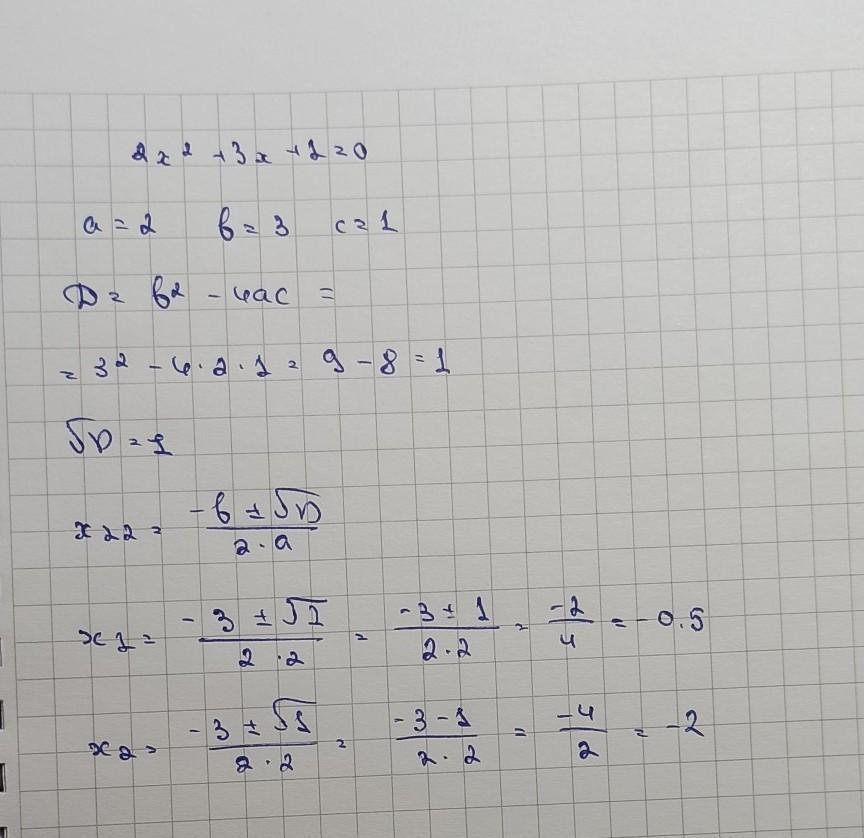 2x² + 3x + 1 = 0
a = 2 b = 3 c = 1
D = b² - 4ac =
= 3² - 4 · 2 · 1 = 9 - 8 = 1
√D = 1
x₁,₂ = (-b ± √D) / (2 · a)
x₁ = (-3 ± √1) / (2 · 2) = (-3 ± 1) / (2 · 2) = -2/4 = -0.5
x₂ = (-3 ± √1) / (2 · 2) = (-3 - 1) / (2 · 2) = -4/2 = -2